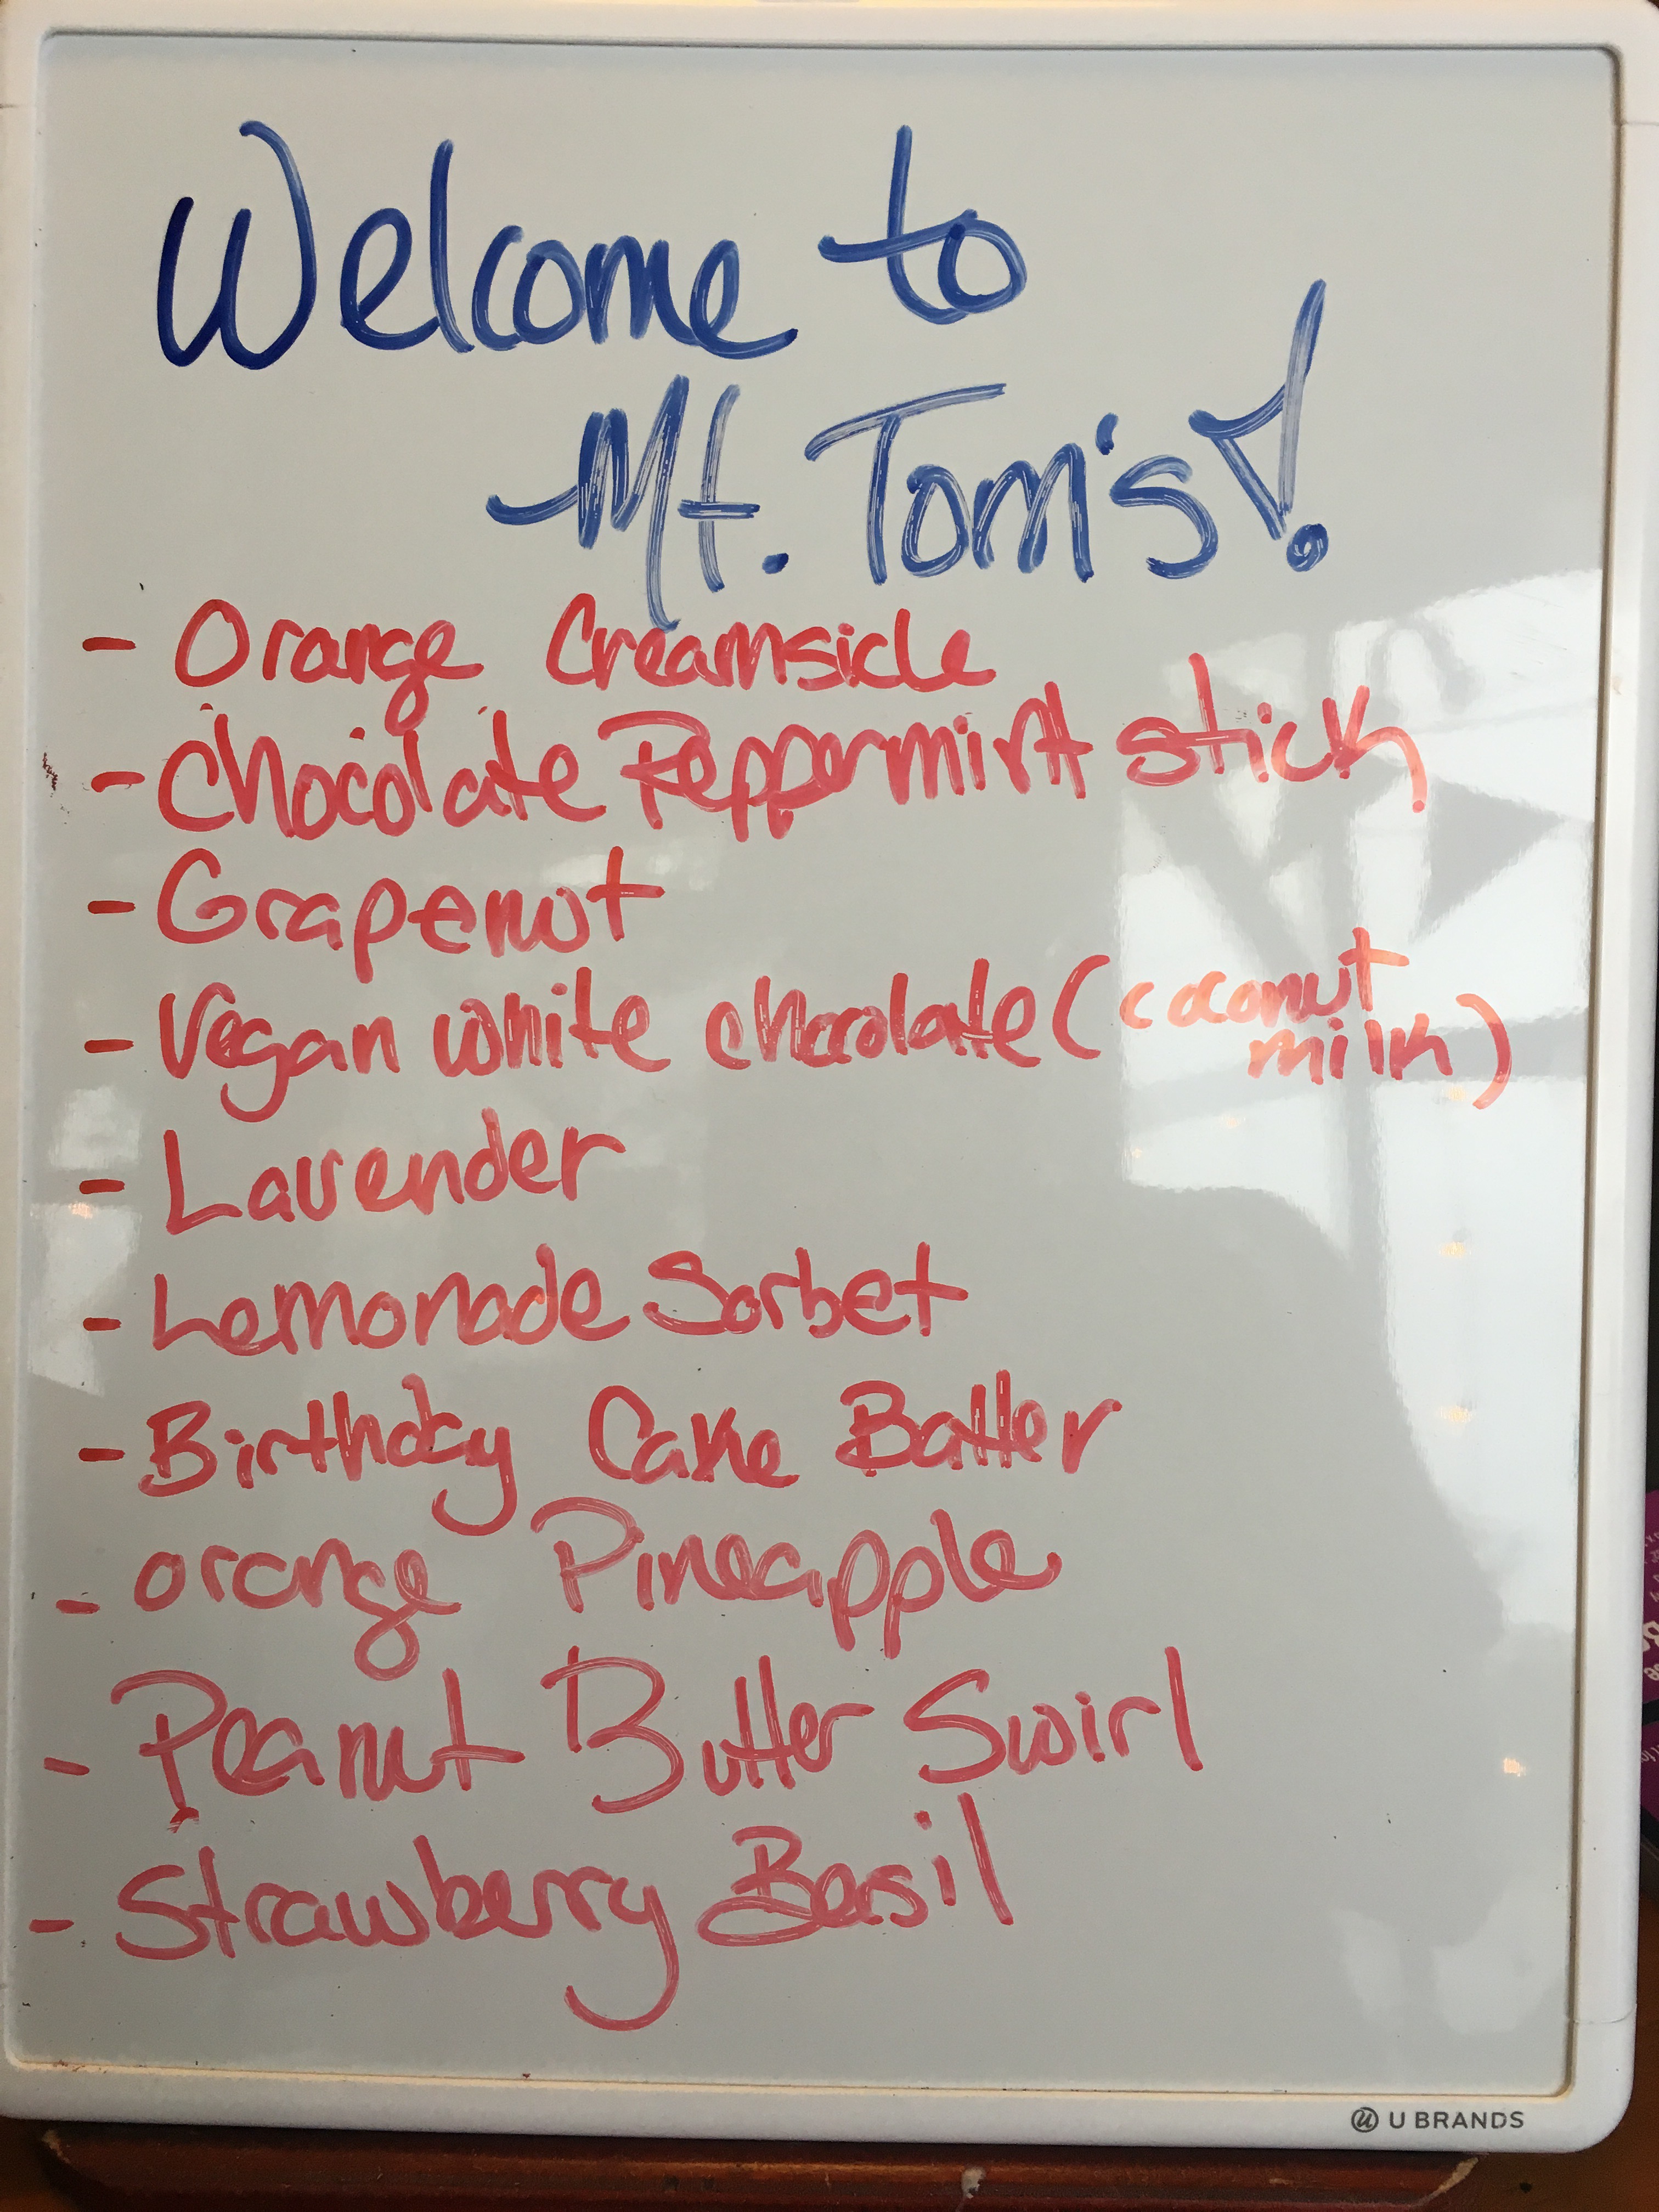 Welcome to
Mt. Tom's!
- Orange Creamsicle
- Chocolate Peppermint stick
- Grapenut
- Vegan white chocolate (coconut
milk)
- Lavender
- Lemonade Sorbet
- Birthday Cake Batter
- orange Pineapple
- Peanut Butter Swirl
- Strawberry Basil
U BRANDS